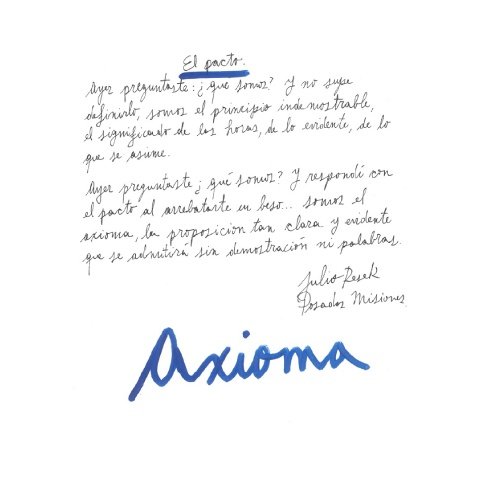 El pacto.
Ayer preguntaste: ¿que somos? Y no supe
definirlo, somos el principio indemostrable,
el significado de las horas, de lo evidente, de lo
que se asume.
Ayer preguntaste ¿qué somos? Y respondí con
el pacto al arrebatarte un beso... somos el
axioma, la proposición tan clara y evidente
que se admitirá sin demostración ni palabras.
Julio Resek
Posadas Misiones
Axioma